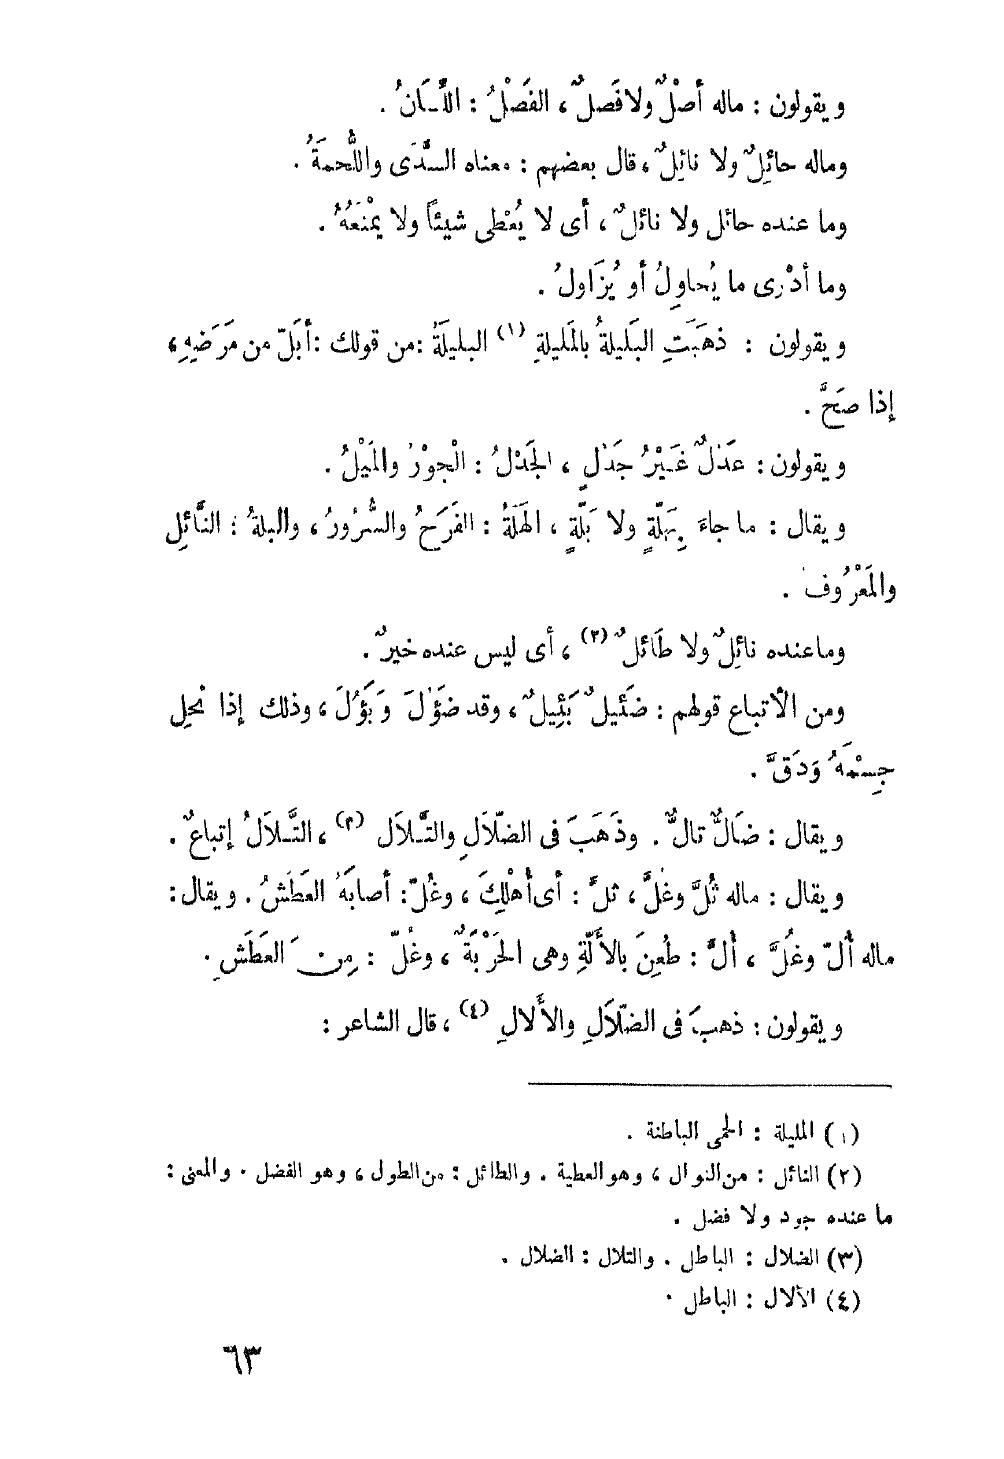 ويقولون : ماله أصْلٌ ولا فَصلٌ ، الفَصْلُ : اللِّسَانُ .
وماله حائِلٌ ولا نائِلٌ ، قال بعضهم : معناه السَّدَى واللُّحمَةُ .
وما عنده حائل ولا نائلٌ ، أى لا يُعْطى شيئاً ولا يمْنَعُهُ .
وما أدْرى ما يُحاوِلُ أو يُزَاولُ .
ويقولون : ذهَبَتِ البَليلةُ بالمَليلةِ (١) البليلَةُ : من قولك : أبَلّ من مَرَضِهِ ،
إذا صَحَّ .
ويقولون : عَدْلٌ غَيْرُ جَدْلٍ ، الجَدْلُ : الْجوْرُ والمَيْلُ .
ويقال : ما جاءَ بِهَلّةٍ ولا بَلّةٍ ، الهَلَةُ : الفَرَحُ والسُّرُورُ ، والبلةُ : النَّائِل
والمَعْرُوف .
وما عنده نائِلٌ ولا طَائلٌ (٢) ، أى ليس عنده خيرٌ .
ومن الأتباع قولهم : ضَئيلٌ بَئِيلٌ ، وقد ضَؤُلَ وَبَؤُلَ ، وذلك إذا نحِل
جِسْمهُ وَدَقَّ .
ويقال : ضَالٌّ تالٌّ . وذَهَبَ فى الضّلاَلِ والتَّلاَل (٣) ، التَّلاَلُ إتباعٌ .
ويقال : ماله ثُلَّ وغُلَّ ، ثلَّ : أى أُهْلِكَ ، وغُلّ : أصابَهُ العَطَشُ . ويقال :
ماله أُلّ وغُلَّ ، أُلَّ : طُعِنَ بالأَلّةِ وهى الحَرْبَةٌ ، وغُلّ : مِنَ العَطَشِ .
ويقولون : ذهبَ فى الضّلاَلِ والأَلالِ (٤) ، قال الشاعر :
(١) المليلة : الحمى الباطنة .
(٢) النائل : من النوال ، وهو العطية . والطائل : من الطول ، وهو الفضل . والمعنى :
ما عنده جود ولا فضل .
(٣) الضلال : الباطل . والتلال : الضلال .
(٤) الألال : الباطل .
٦٣